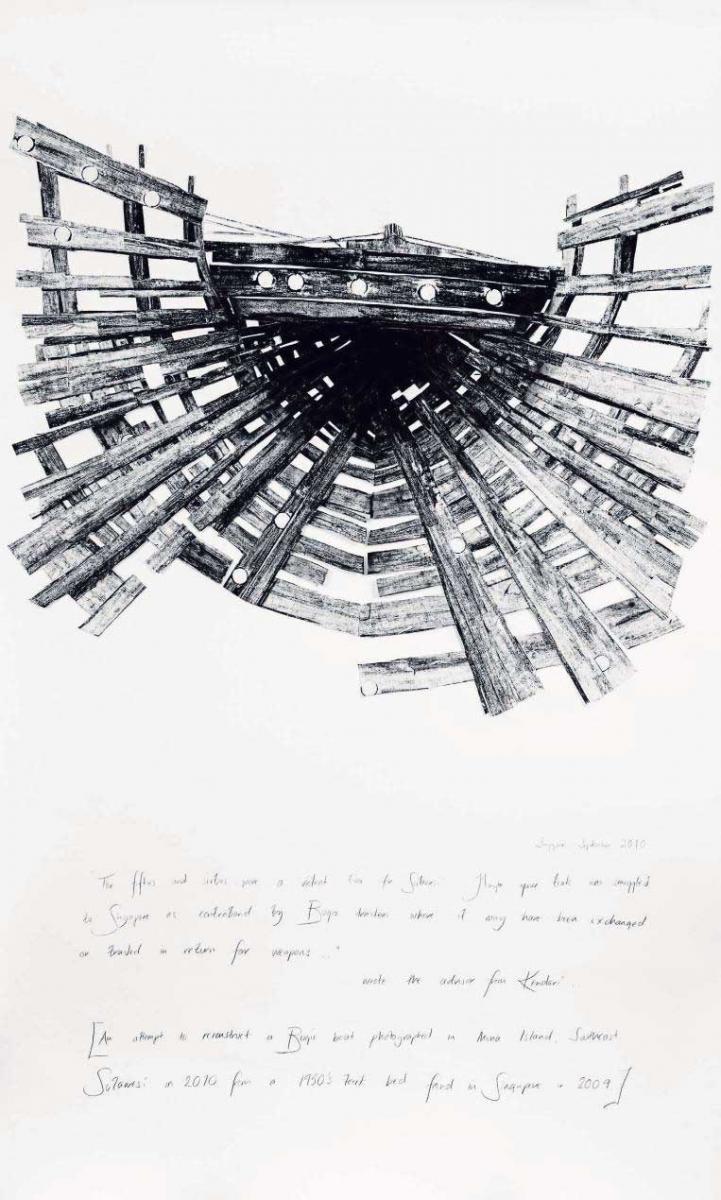 Singapore September 2010
"The fifties and sixties were a violent time for Sulawesi. Maybe your teak was smuggled
to Singapore as contraband by Bugis traders where it may have been exchanged
or traded in return for weapons ..."
wrote the advisor from Kendari.
[An attempt to reconstruct a Bugis boat photographed in Muna Island, Southeast
Sulawesi in 2010 from a 1950's teak bed found in Singapore in 2009]